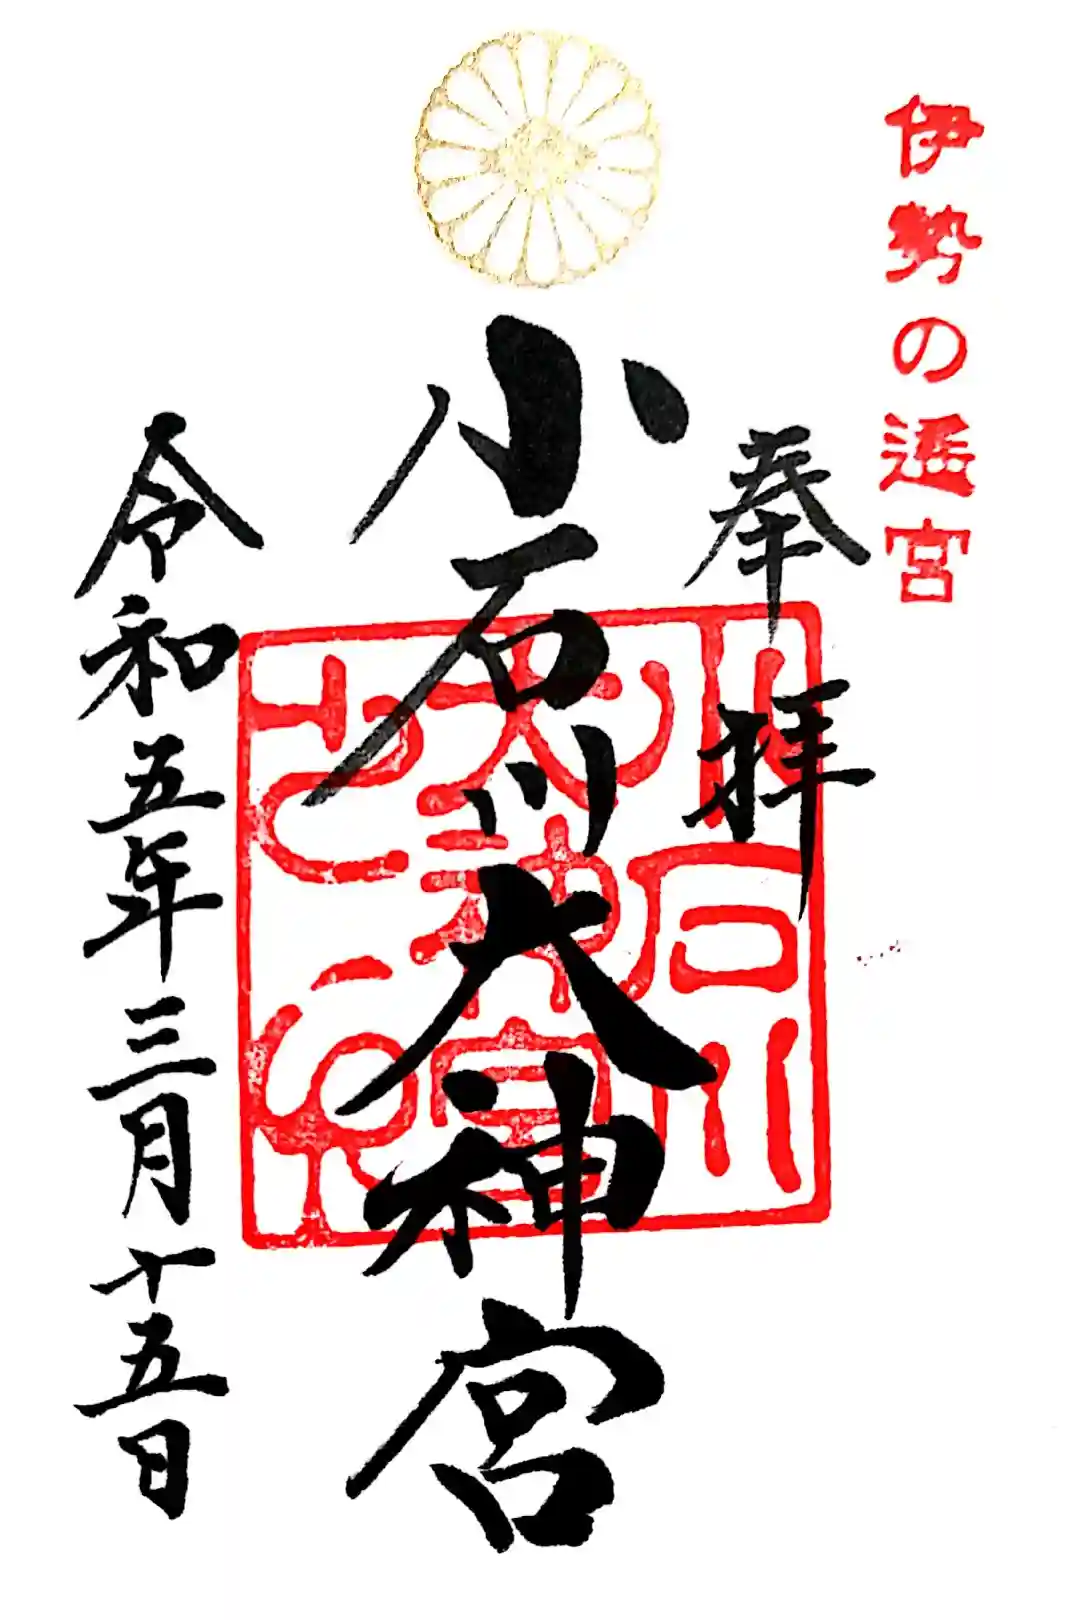 伊勢の遥宮
奉拝
小石川大神宮
小石川
大神宮
令和五年三月十五日